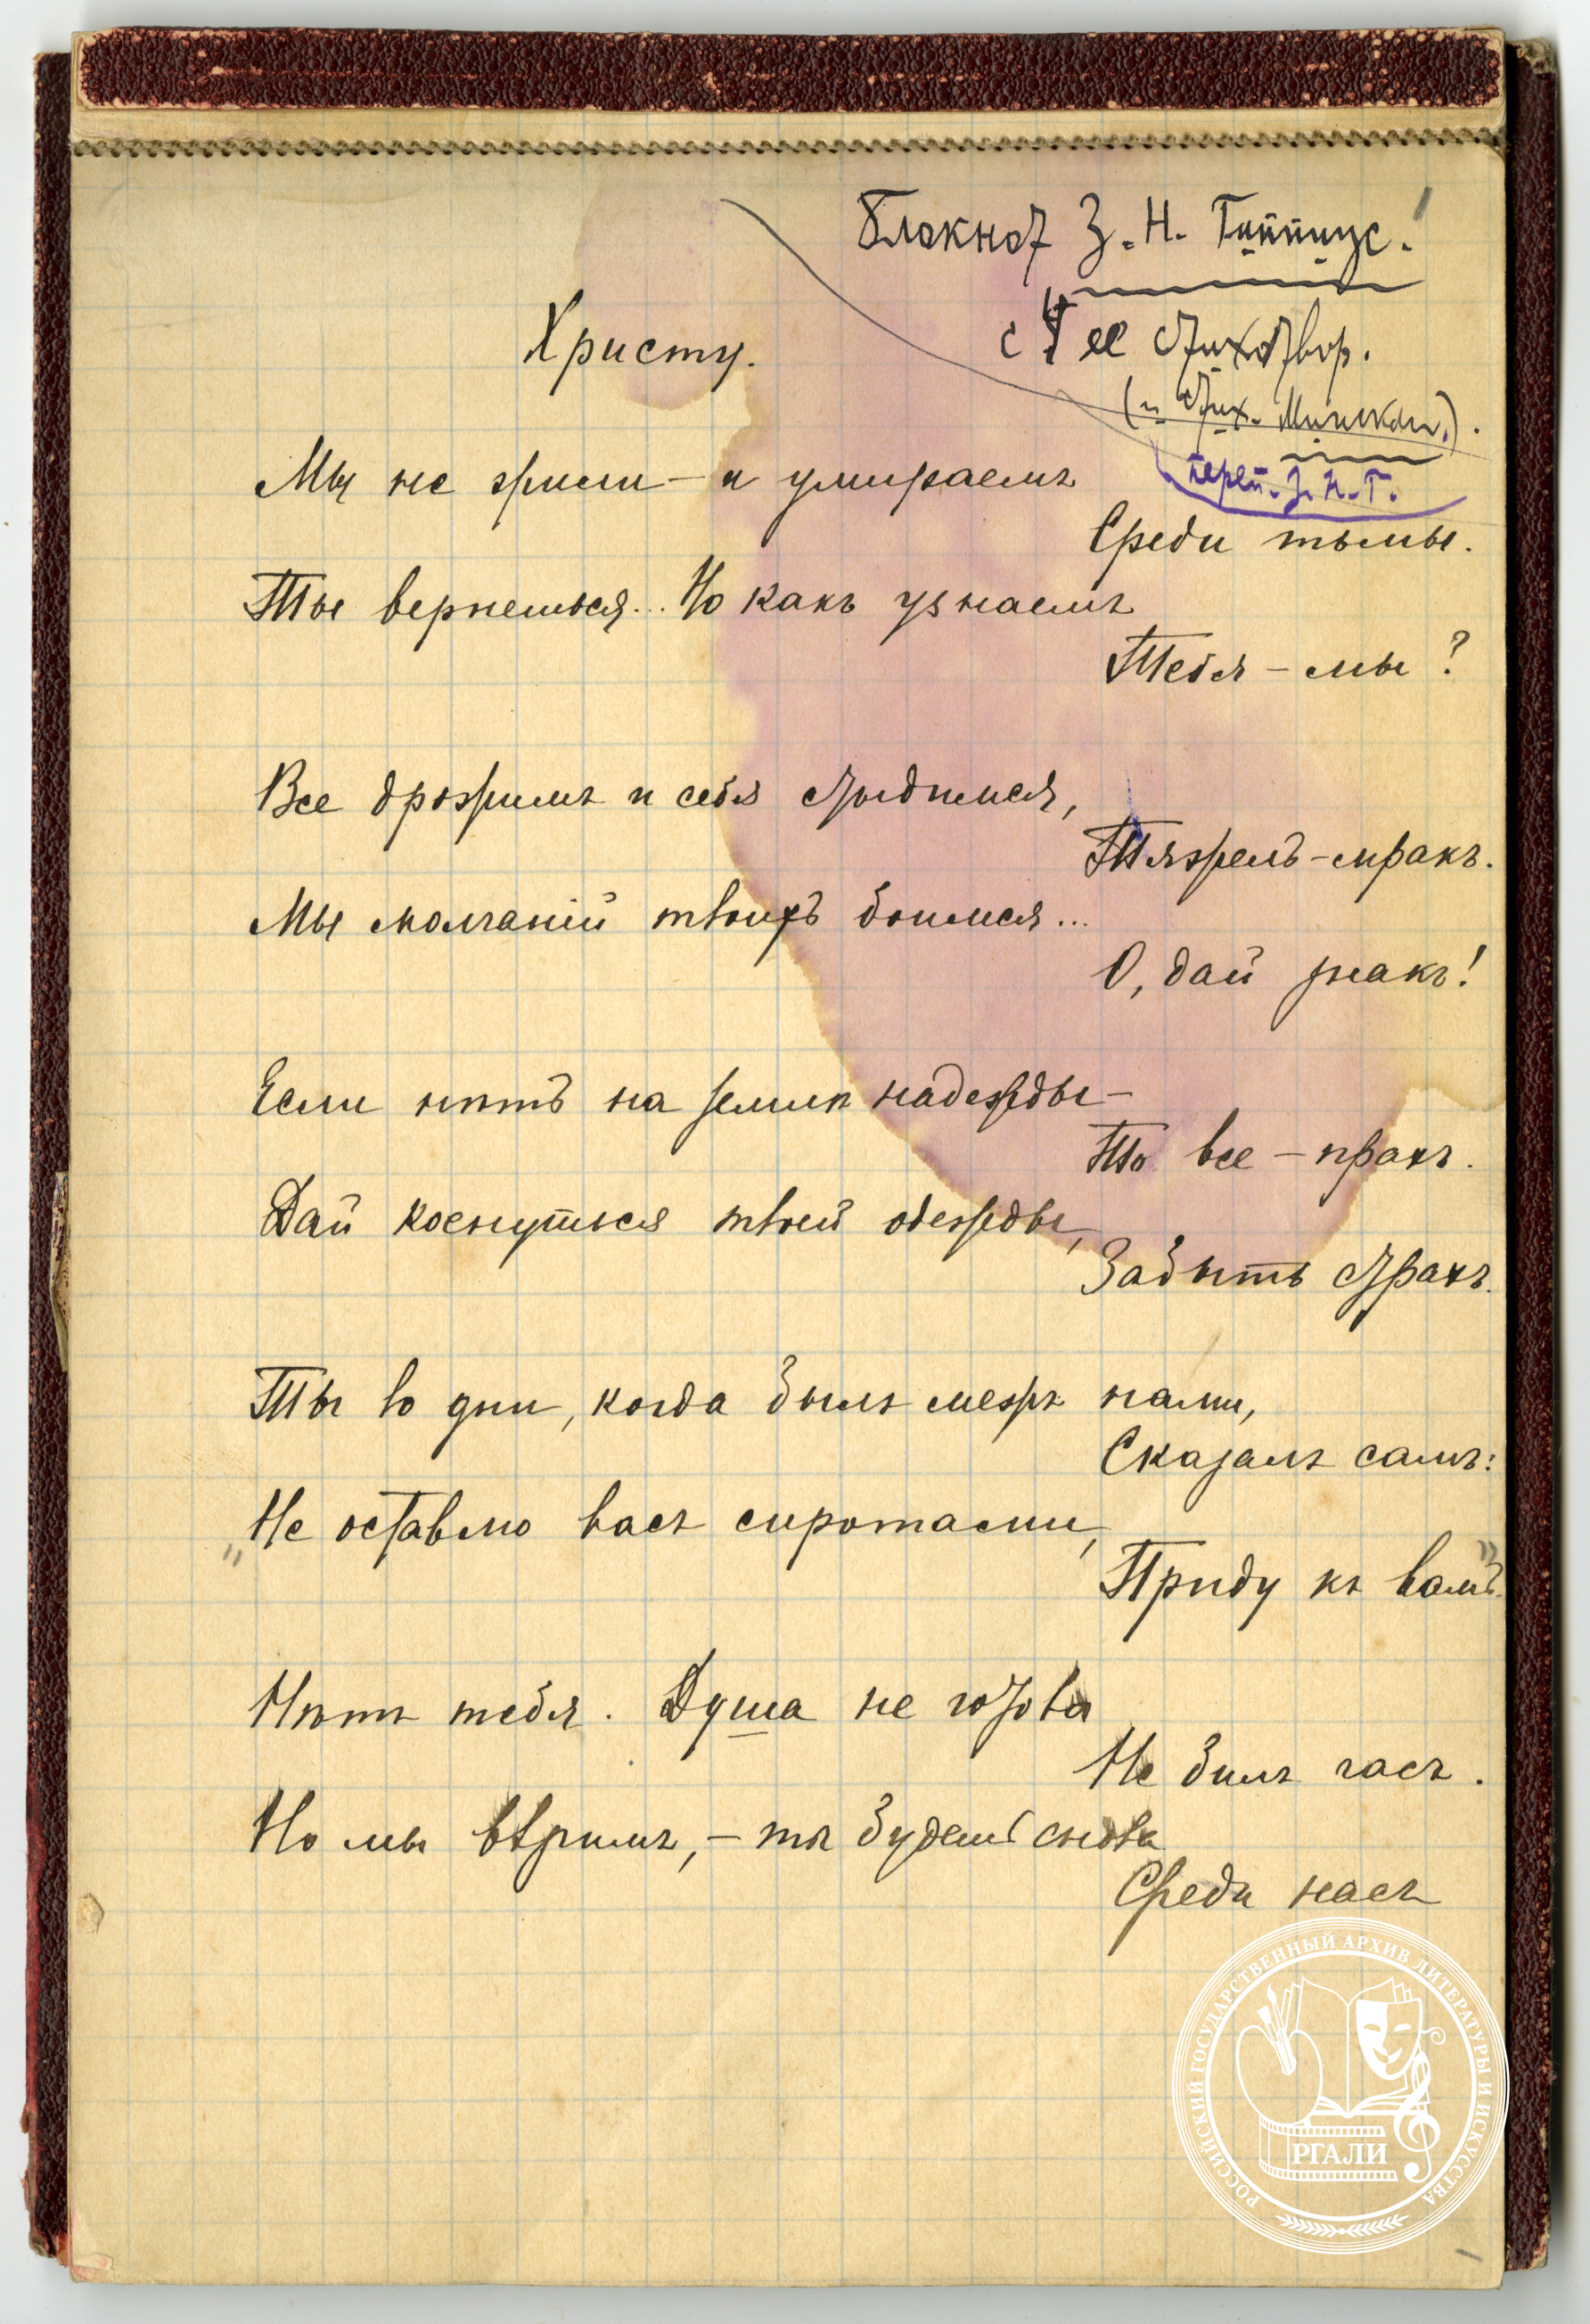 Блокнот З. Н. Гиппиус.
с 4 ее стихотвор.
(и стих. Минскаго.).
переп. З. Н. Г.
Христу.
Мы не жили – и умираемъ
Среди тьмы.
Ты вернешься... Но какъ узнаемъ
Тебя – мы?
Все дрожимъ и себя стыдимся,
Тяжелъ – мракъ.
Мы молчаній твоихъ боимся...
О, дай знакъ!
Если нѣтъ на землѣ надежды –
То все – прахъ.
Дай коснуться твоей одежды,
Забыть страхъ.
Ты во дни, когда былъ межъ нами,
Сказалъ самъ:
„Не оставлю васъ сиротами,
Приду къ вамъ."
Нѣтъ тебя. Душа не готова
Не билъ часъ.
Но мы вѣримъ, – ты будешь снова
Среди насъ
РОССИЙСКИЙ ГОСУДАРСТВЕННЫЙ АРХИВ ЛИТЕРАТУРЫ И ИСКУССТВА
РГАЛИ